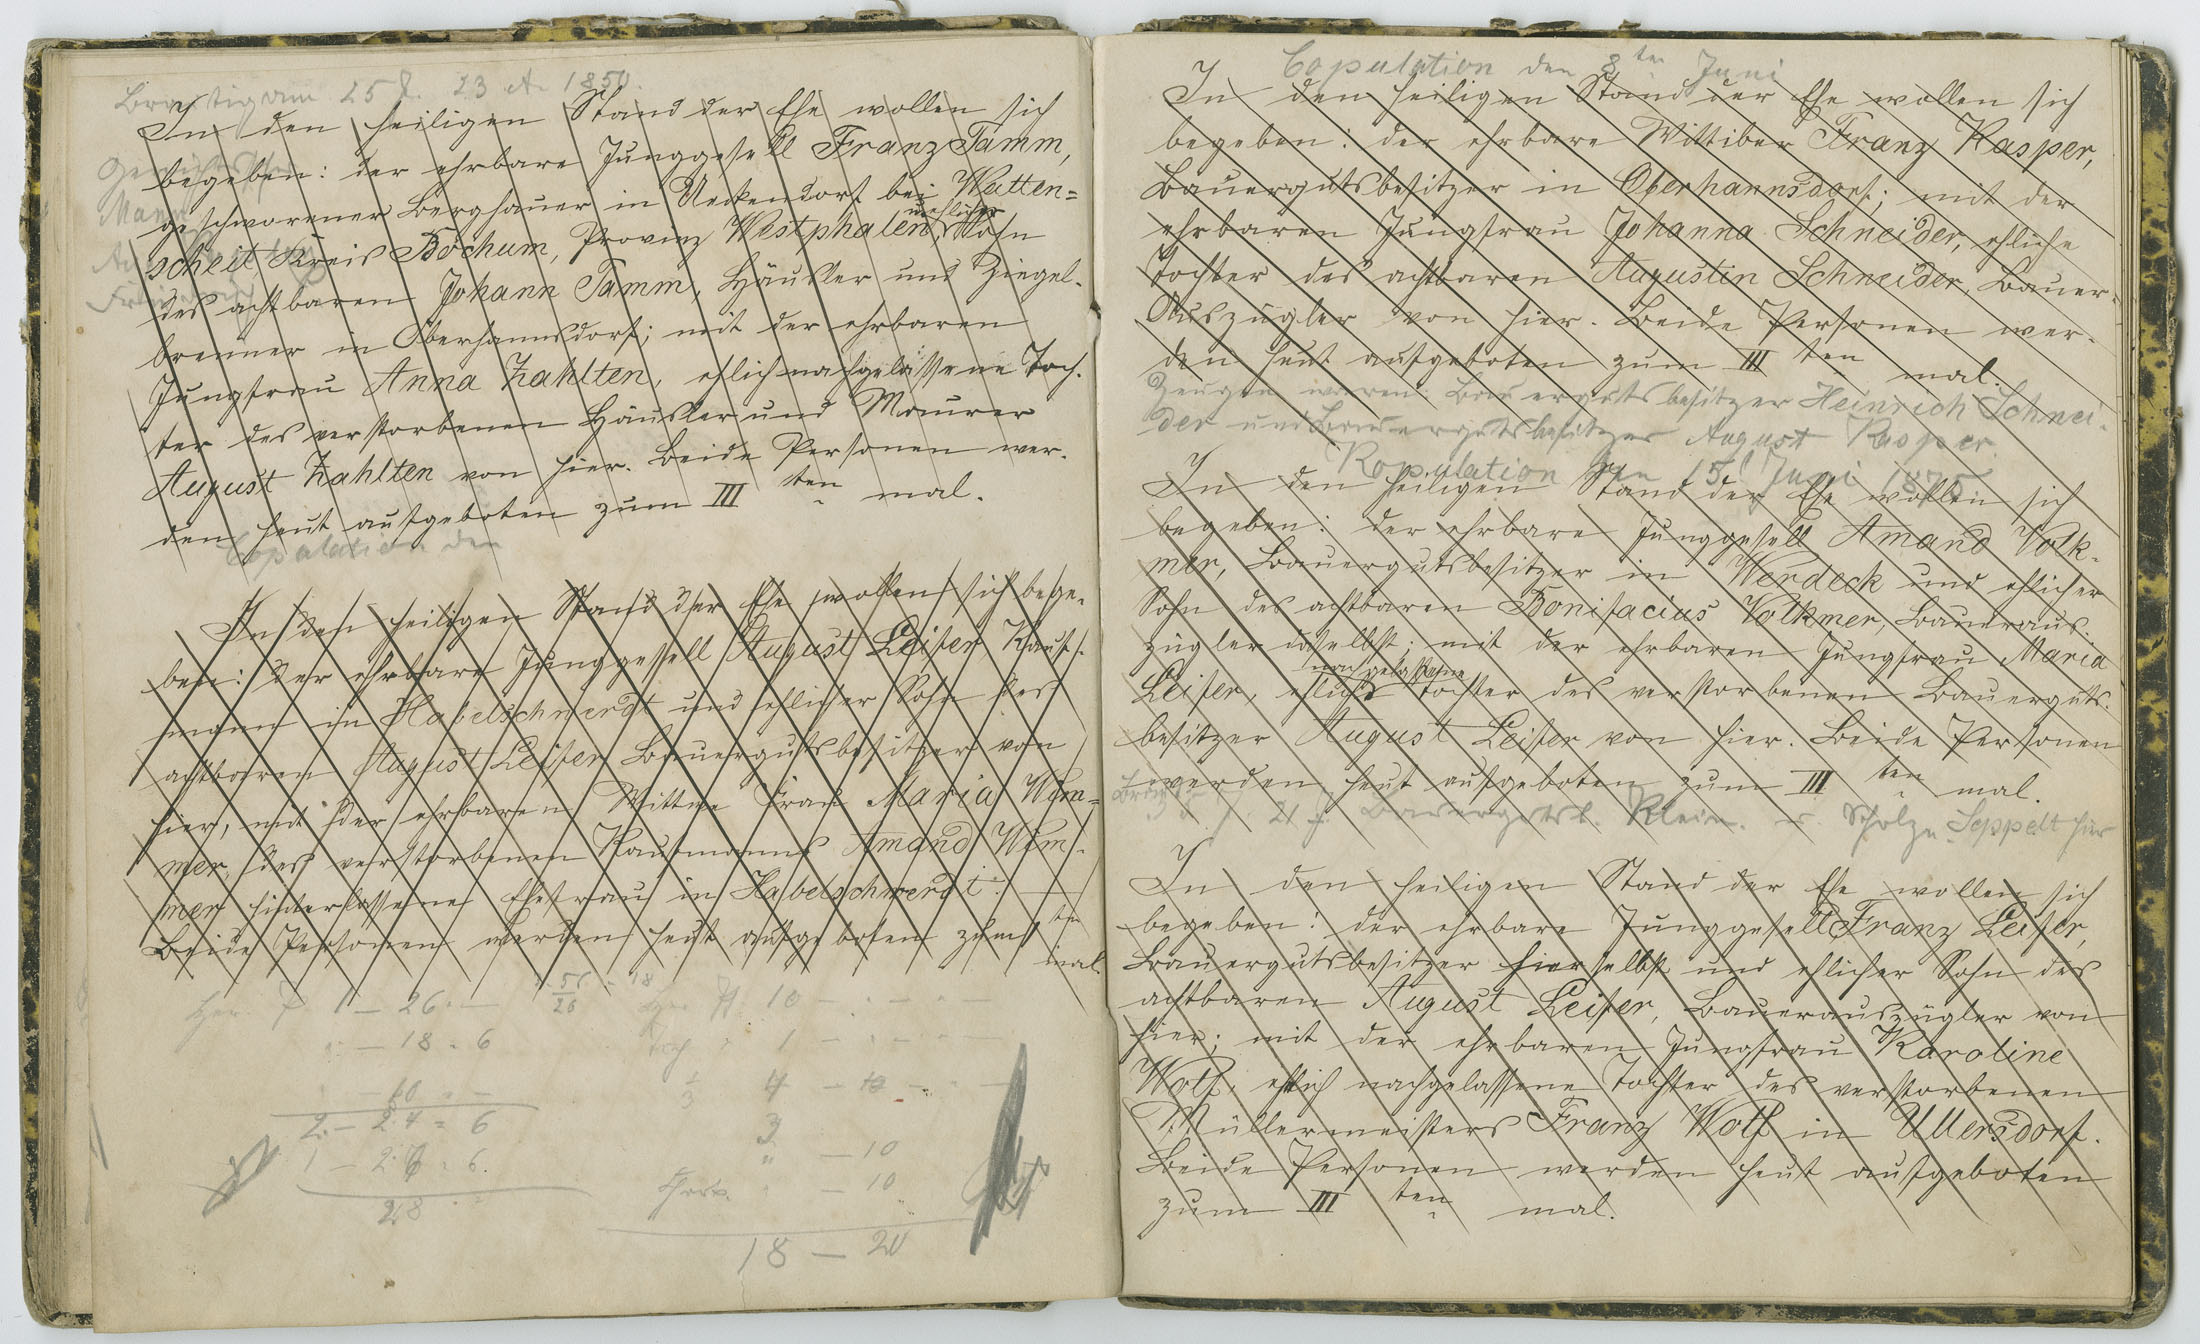 Bräutigam 25 J. 23 A. 1850.
In den heiligen Stand der Ehe wollen sich
begeben: der ehrbare Junggesell Franz Tamm,
geschworener Berghauer in Ueckendorf bei Watten=
scheit Kreis Bochum, Provinz Westphalen, ehlicher Sohn
des achtbaren Johann Tamm, Häusler und Ziegel-
brenner in Oberhannsdorf; mit der ehrbaren
Jungfrau Anna Zahlten, ehlich nachgelassene Toch-
ter des verstorbenen Häusler und Maurer
August Zahlten von hier. Beide Personen wer-
den heut aufgeboten zum III ten mal.
Copulation den
In den heiligen Stand der Ehe wollen sich bege-
ben: der ehrbare Junggesell August Leiser, Kauf-
mann in Habelschwerdt und ehlicher Sohn des
achtbaren August Leiser Bauergutsbesitzer von
hier, mit der ehrbaren Wittwe Frau Maria Wim=
mer, des verstorbenen Kaufmanns Amand Wim-
mer hinterlassene Ehefrau in Habelschwerdt.
Beide Personen werden heut aufgeboten zum ten
mal.
1 – 26
– 18 = 6
– 10
2 – 24 = 6
1 – 26 = 6
28
10 – –
1 – –
4
3
– 10
– 10
18 – 20
Copulation den 8ten Juni
In den heiligen Stand der Ehe wollen sich
begeben: der ehrbare Wittiber Franz Kasper,
Bauergutsbesitzer in Oberhannsdorf; mit der
ehrbaren Jungfrau Johanna Schneider, ehliche
Tochter des achtbaren Augustin Schneider, Bauer-
Auszügler von hier. Beide Personen wer-
den heut aufgeboten zum III ten mal.
Zeugen waren: Bauergutsbesitzer Heinrich Schnei-
der und Bauergutsbesitzer August Kasper.
Kopulation den 15. Juni 1875
In den heiligen Stand der Ehe wollen sich
begeben: der ehrbare Junggesell Amand Volk-
mer, Bauergutsbesitzer in Werdeck und ehlicher
Sohn des achtbaren Bonifacius Volkmer, Baueraus-
zügler daselbst; mit der ehrbaren Jungfrau Maria
Leiser, ehlich nachgelassene Tochter des verstorbenen Bauerguts-
besitzer August Leiser von hier. Beide Personen
werden heut aufgeboten zum III ten mal.
21 J. Bauergutsb. Klein. u. Scholze Seppelt hier
In den heiligen Stand der Ehe wollen sich
begeben: der ehrbare Junggesell Franz Leiser,
Bauergutsbesitzer hierselbst und ehlicher Sohn des
achtbaren August Leiser, Bauerauszügler von
hier; mit der ehrbaren Jungfrau Karoline
Wolf, ehlich nachgelassene Tochter des verstorbenen
Müllermeisters Franz Wolf in Ullersdorf.
Beide Personen werden heut aufgeboten
zum III ten mal.